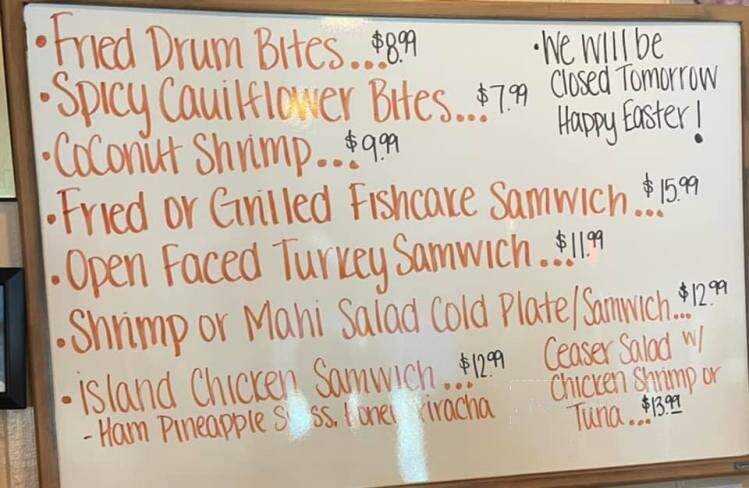 •Fried Drum Bites...$8.99
•Spicy Cauilflower Bites...$7.99
•Coconut Shrimp...$9.99
•Fried or Grilled Fishcake Samwich...$15.99
•Open Faced Turkey Samwich...$11.99
•Shrimp or Mahi Salad Cold Plate/Samwich...$12.99
•island Chicken Samwich...$12.99
-Ham Pineapple
•We will be
Closed Tomorrow
Happy Easter!
Ceaser Salad w/
Chicken Shrimp or
Tuna...$13.99